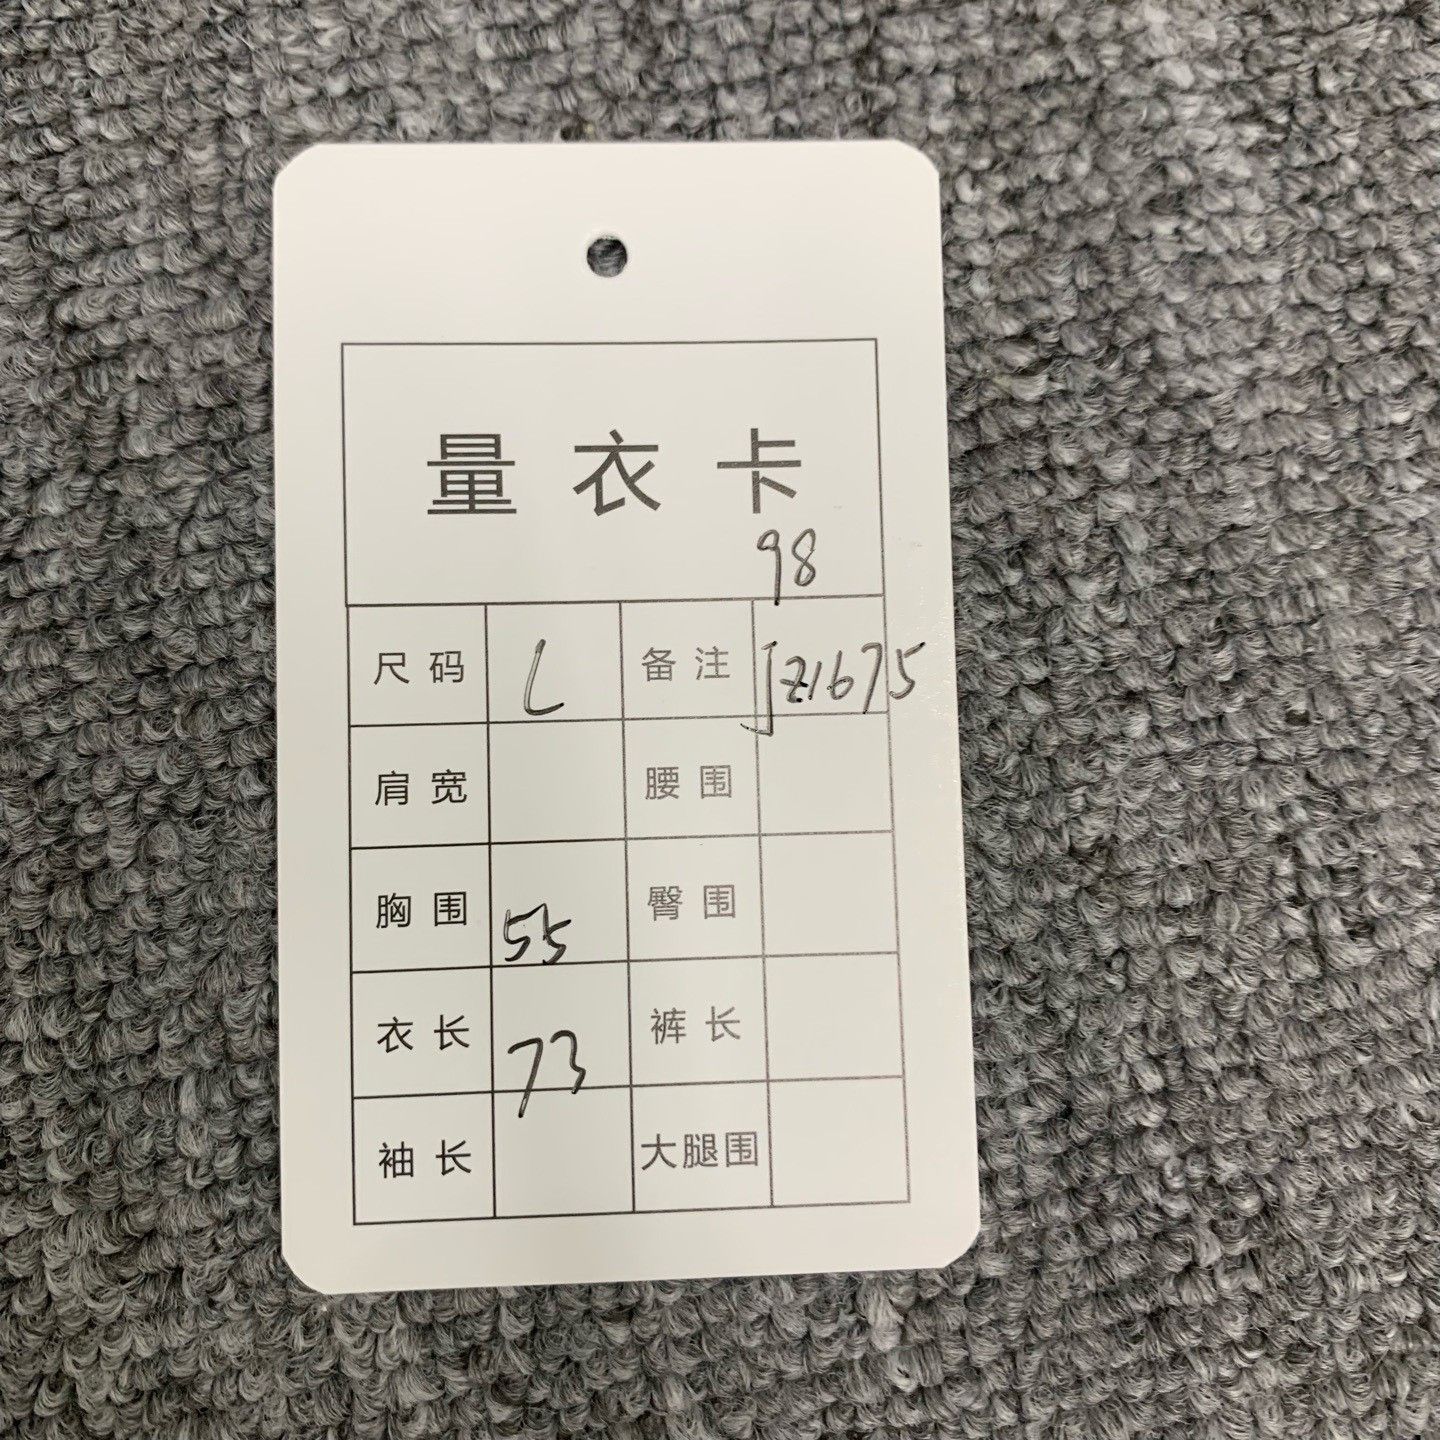 量衣卡
98
尺码 L 备注 JZ1675
肩宽 腰围
胸围 55 臀围
衣长 73 裤长
袖长 大腿围